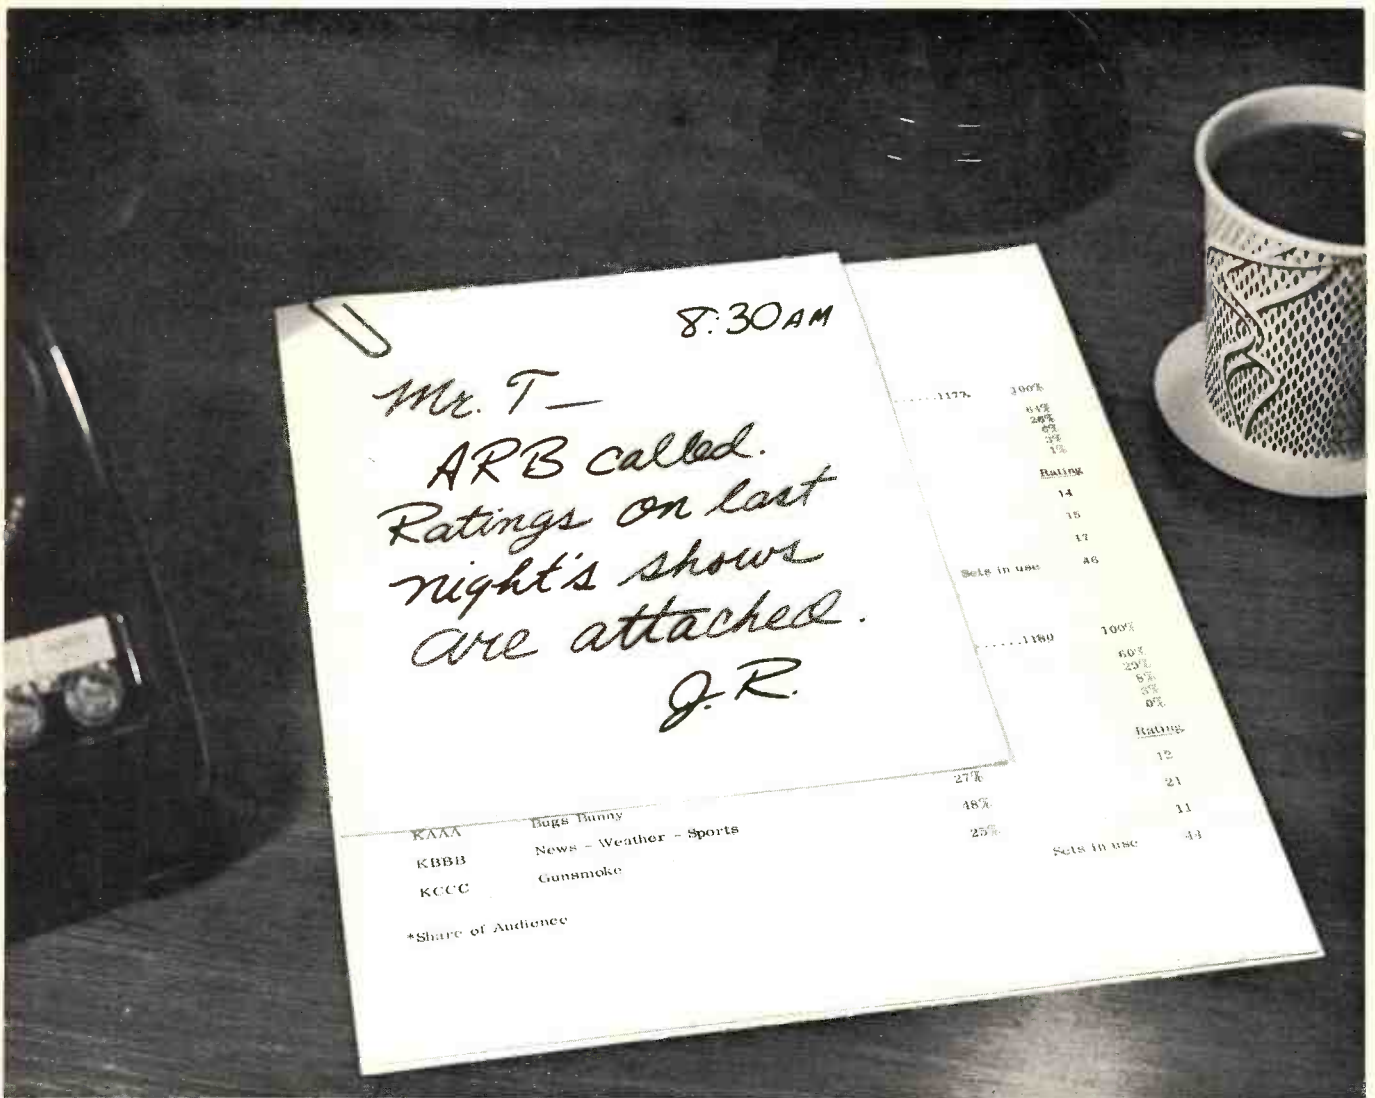 8:30 AM
Mr. T—
ARB called.
Ratings on last
night's shows
are attached.
J.R.
......1177 100%
64%
26%
6%
3%
1%
Rating
14
15
17
Sets in use 46
......1180 100%
60%
29%
8%
3%
0%
Rating
12
21
11
Sets in use 44
KAAA Bugs Bunny 27%
KBBB News - Weather - Sports 48%
KCCC Gunsmoke 25%
*Share of Audience